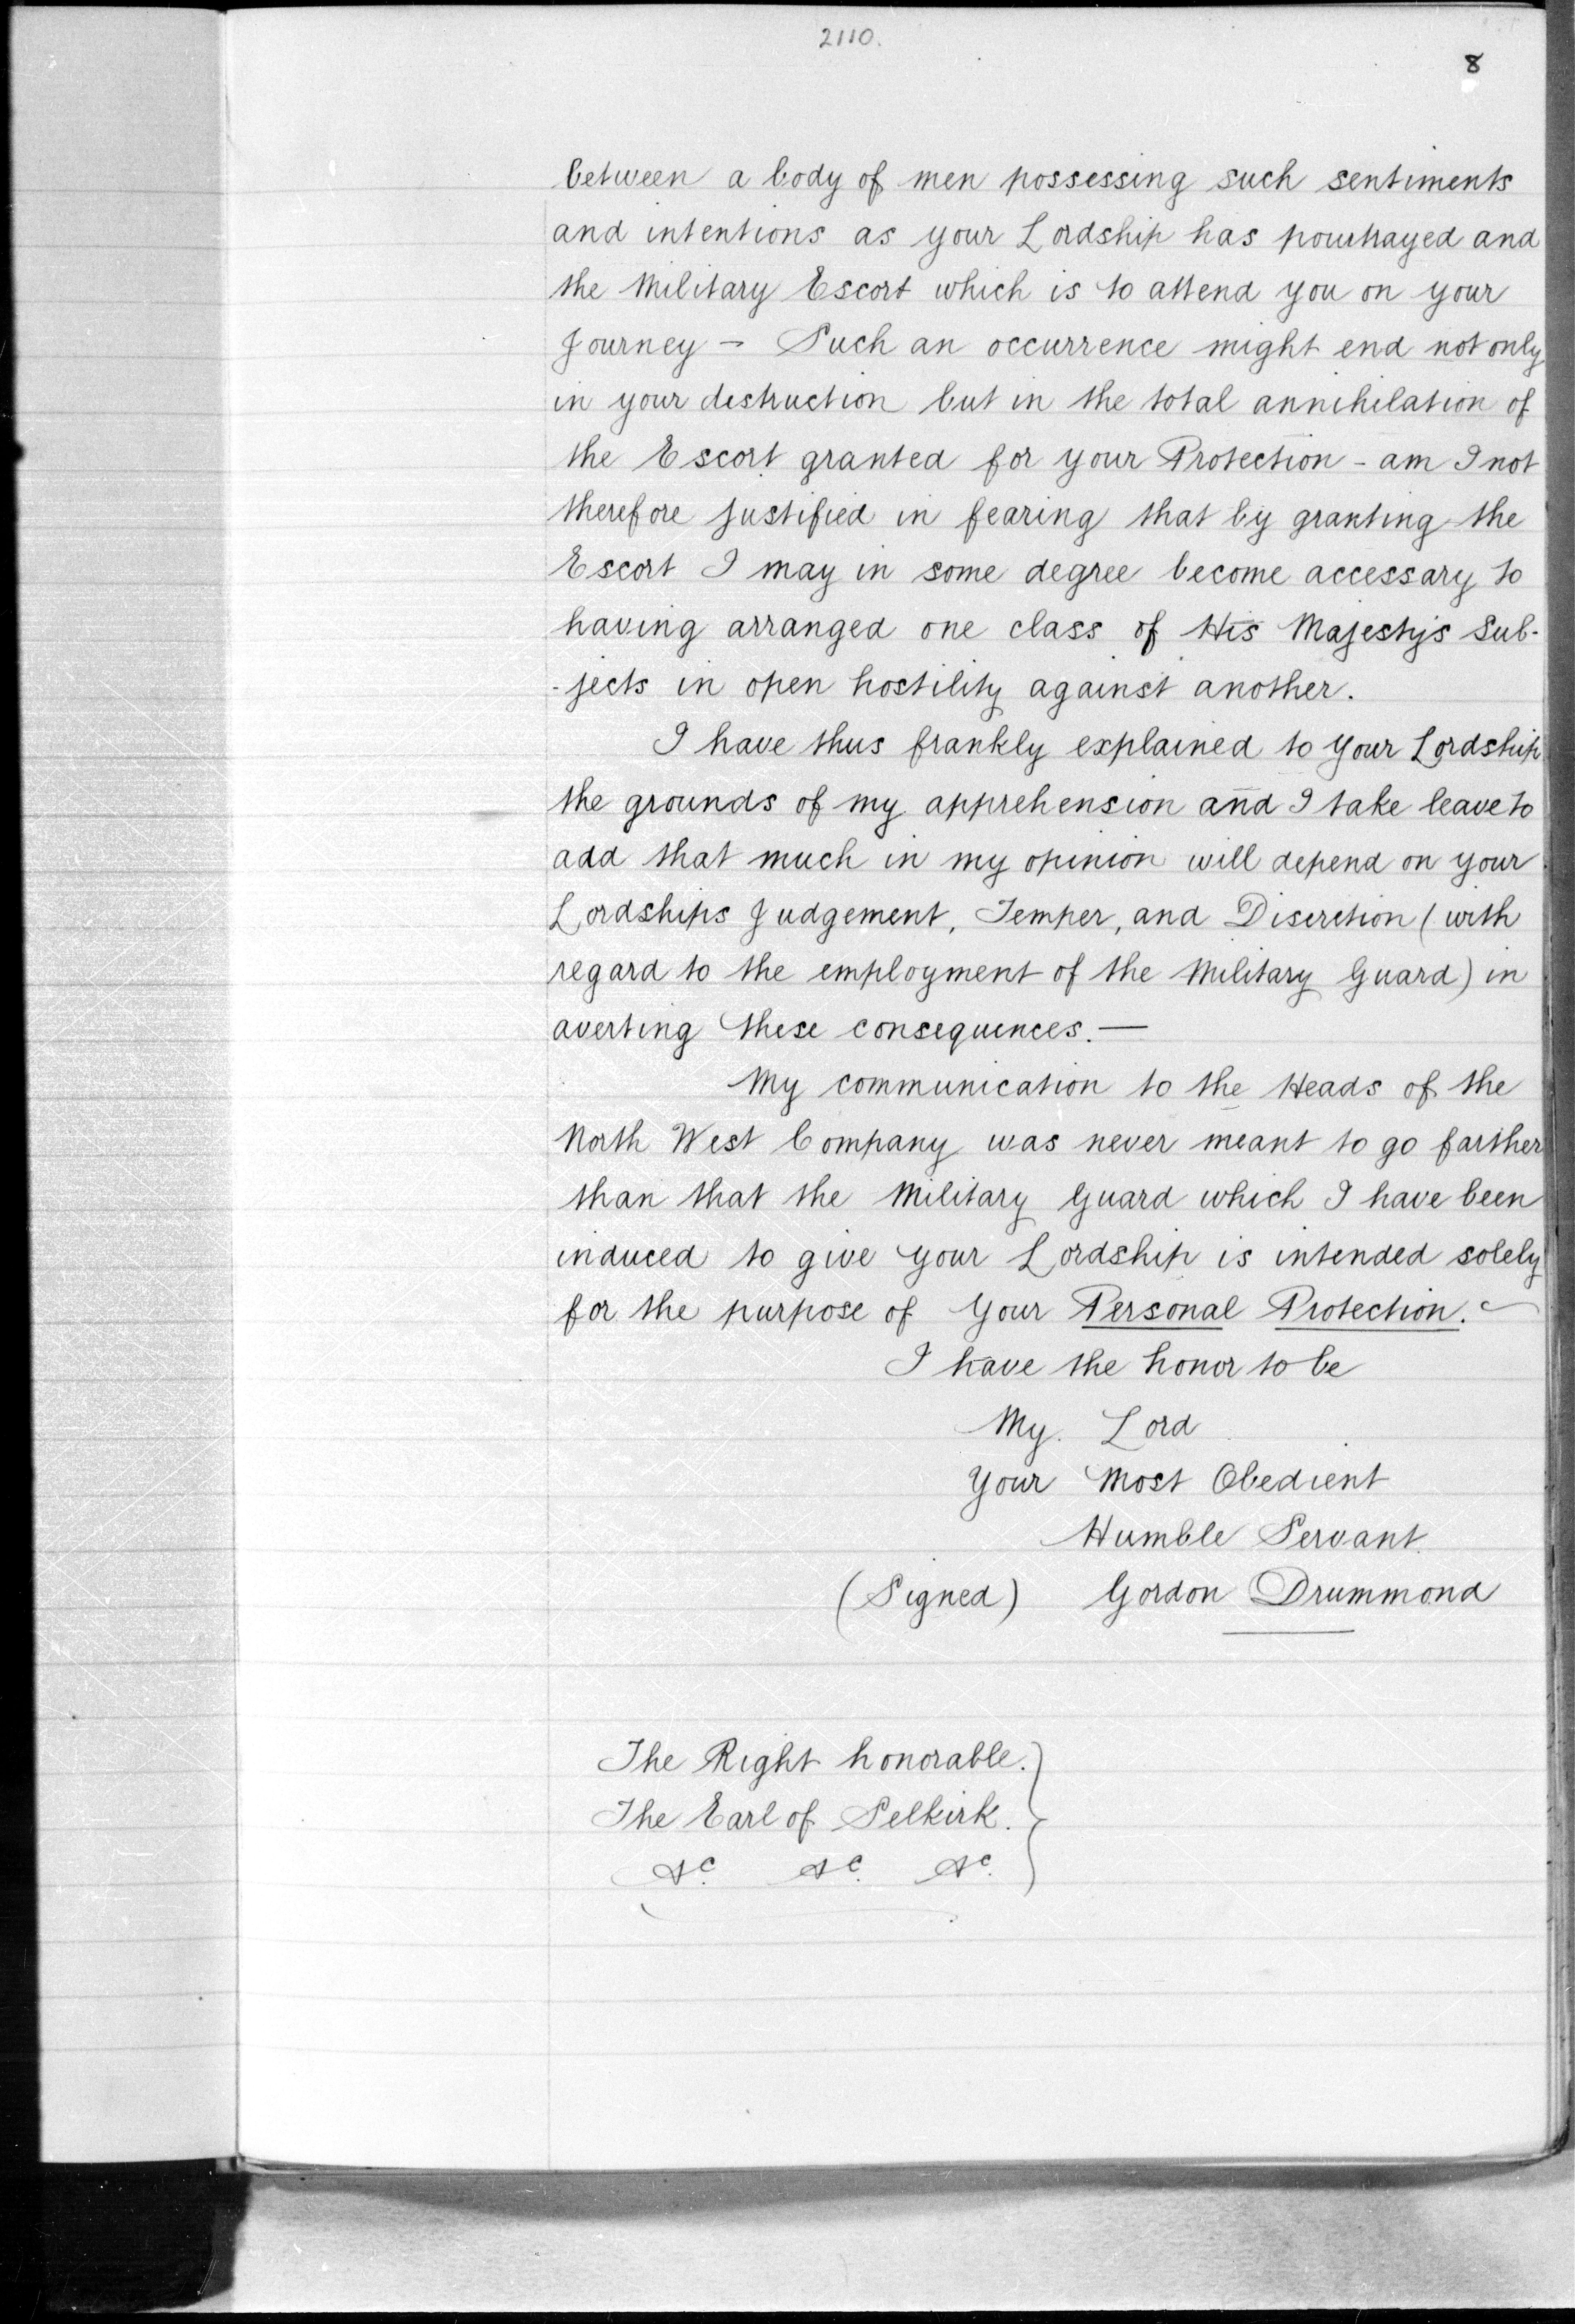 2110.
8
between a body of men possessing such sentiments
and intentions as your Lordship has pourtrayed and
the Military Escort which is to attend you on your
Journey – Such an occurrence might end not only
in your destruction but in the total annihilation of
the Escort granted for your Protection – am I not
therefore justified in fearing that by granting the
Escort I may in some degree become accessary to
having arranged one class of His Majesty's Sub-
-jects in open hostility against another.
I have thus frankly explained to your Lordship
the grounds of my apprehension and I take leave to
add that much in my opinion will depend on your
Lordships Judgement, Temper, and Discretion (with
regard to the employment of the Military Guard) in
averting these consequences. —
My communication to the Heads of the
North West Company was never meant to go farther
than that the Military Guard which I have been
induced to give your Lordship is intended solely
for the purpose of your Personal Protection. –
I have the honor to be
My Lord
Your Most Obedient
Humble Servant
(Signed) Gordon Drummond
The Right honorable.
The Earl of Selkirk.
&c. &c. &c.